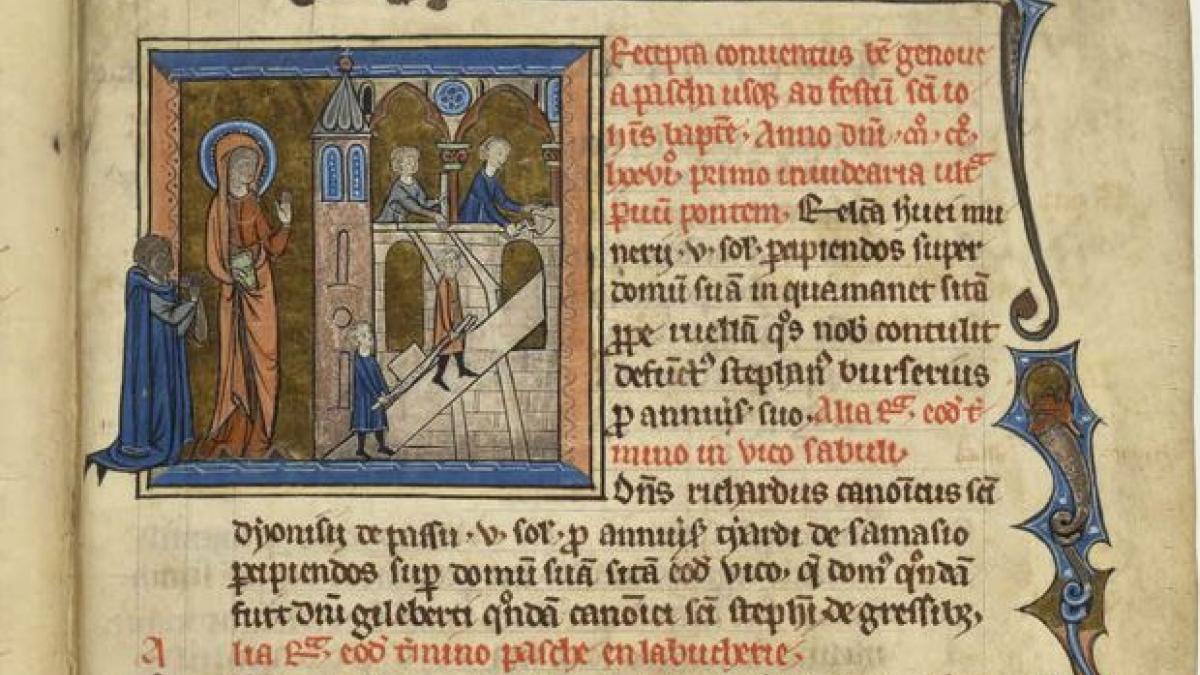 Recepta conuentus bē genoue
a pascha usq; ad festū scī io
hīs bapte. Anno dnī. mº. ccº.
primo in iudearia ult
puū pontem.
nerij. v. sol. papiendos super
domū suā in qua manet sitā
ppe ruellā qºs nob contulit
defunctº stephanº burserius
p annuiſ suo. Alia Rª. eod tī
mino in vico sabuli.
Dn̄s richardus canoīcus scī
dyonisij de passu. v. sol. p annuiſ de samasio
papiendos sup domū suā sitā eod vico. q̄ domº qºndā
fuit dn̄i geleberti qºndā canoīci scī stephī de gressibz.
Alia Rª. eod tīmino pasche en labucherie.